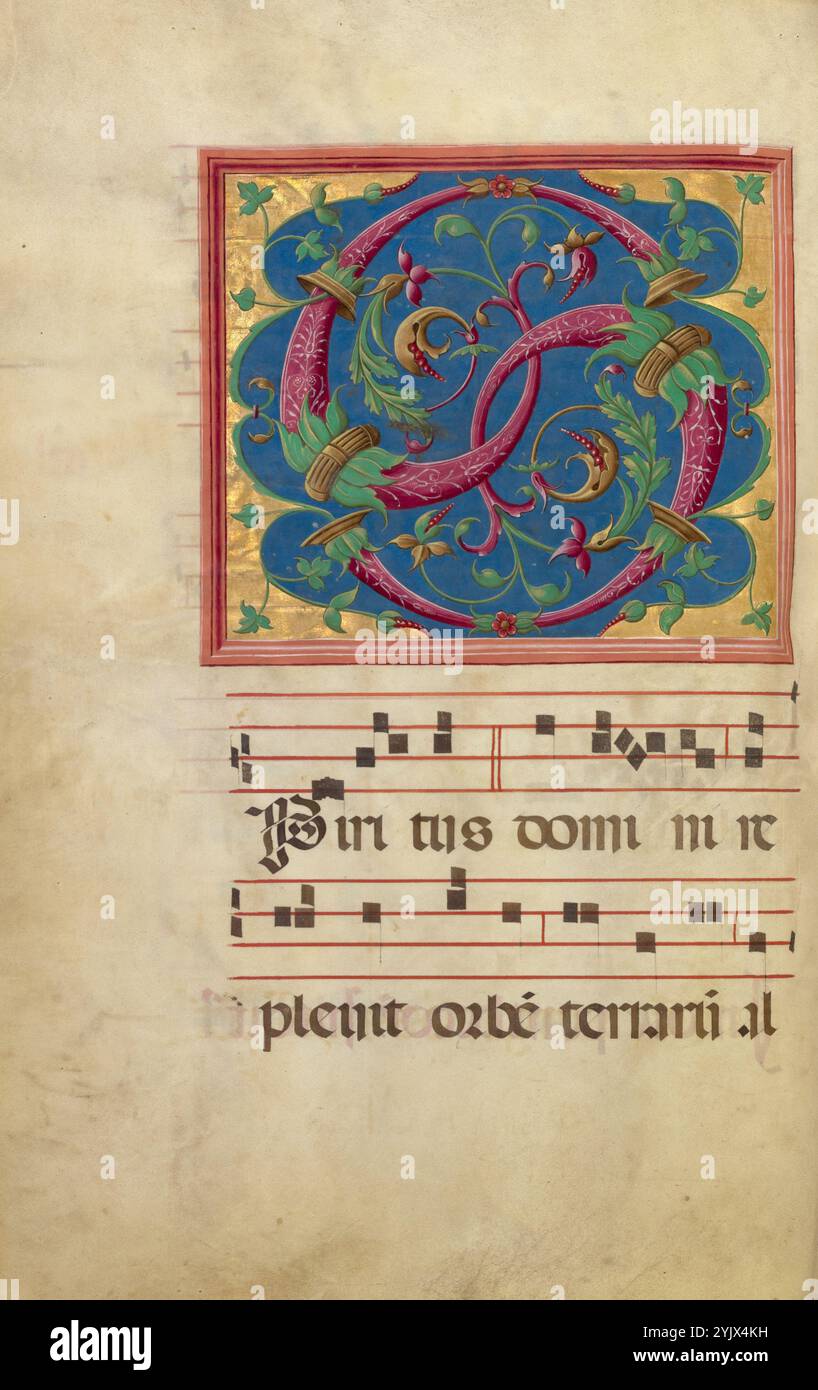 S
Piri tus domi ni re
plevit orbē terrarū al
alamy
Image ID: 2YJX4KH
www.alamy.com